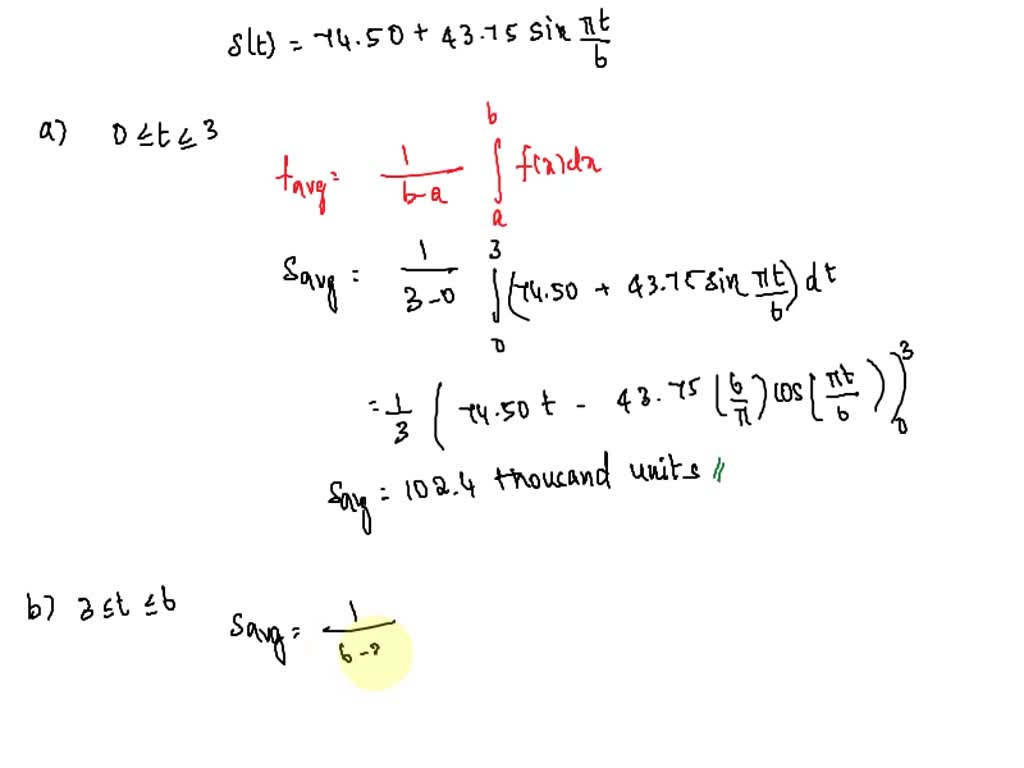 S(t) = 74.50 + 43.75 sin πt/6
a) 0 ≤ t ≤ 3
favg = 1/(b-a) ∫_a^b f(x)dx
Savg = 1/(3-0) ∫_0^3 (74.50 + 43.75 sin πt/6) dt
= 1/3 (74.50 t - 43.75 (6/π) cos(πt/6))]_0^3
Savg = 102.4 thousand units //
b) 3 ≤ t ≤ 6 Savg = 1/(6-